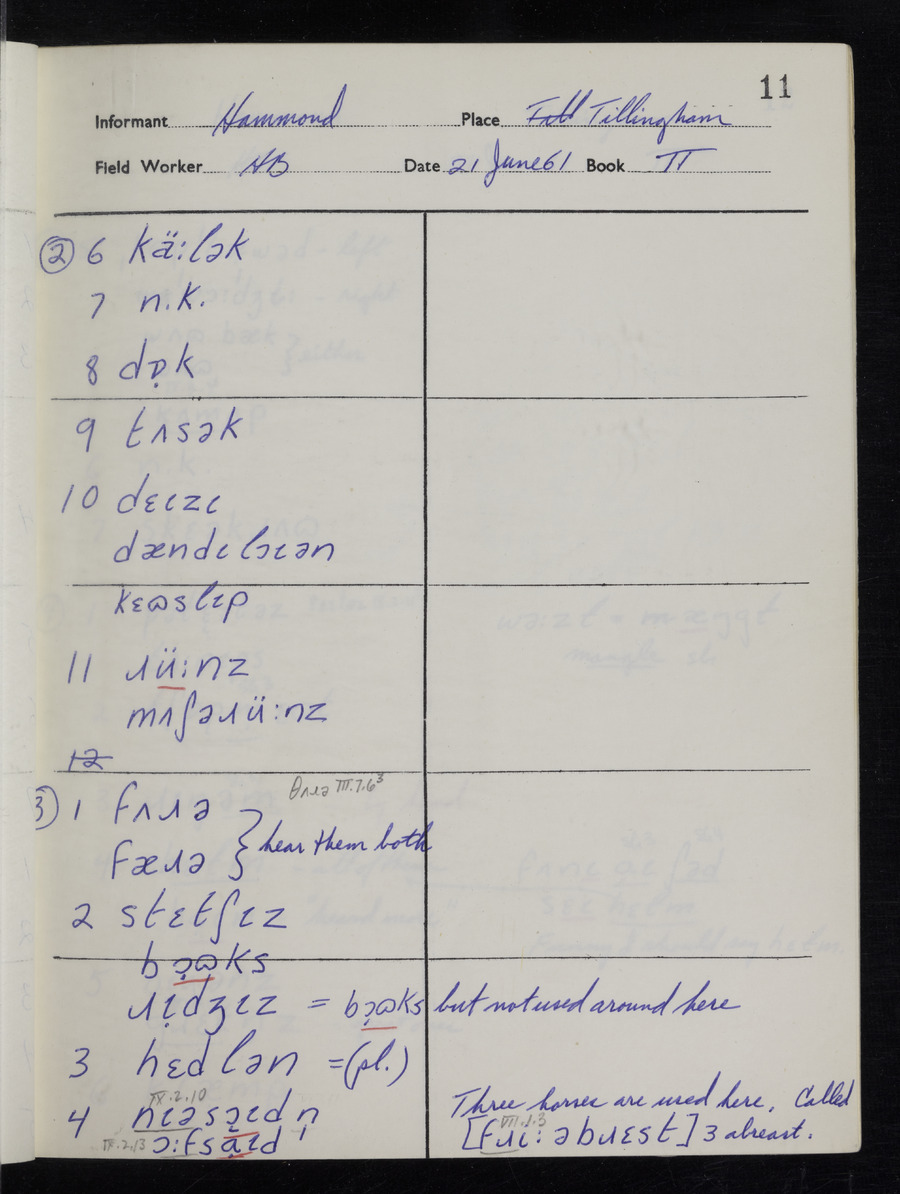 11
Informant Hammond Place Tillingham
Field Worker HB Date 21 June 61 Book II
② 6 kä:lək
7 n.k.
8 dɒ̣k
9 tʌsək
10 dɛɩzɩ
dændɩlɔɩən
kɛɷslɩp
11 ɹü:nz
mʌʃəɹü:nz
12
③ 1 fʌɹə θʌɹə III.7.6³
fæɹə } hear them both
2 stɛtʃɩz
bɔ̣ɷks
ɹɩ̣dʒɩz = bɔ̣ɷks but not used around here
3 hɛdlən =(pl.)
IX.2.10
4 nɩəsə̣ɩdn̩ Three horses are used here. Called
IX.2.13 ɔ:fsạɩd VII.1.3 [fɹɩ: əbɹɛst] 3 abreast.